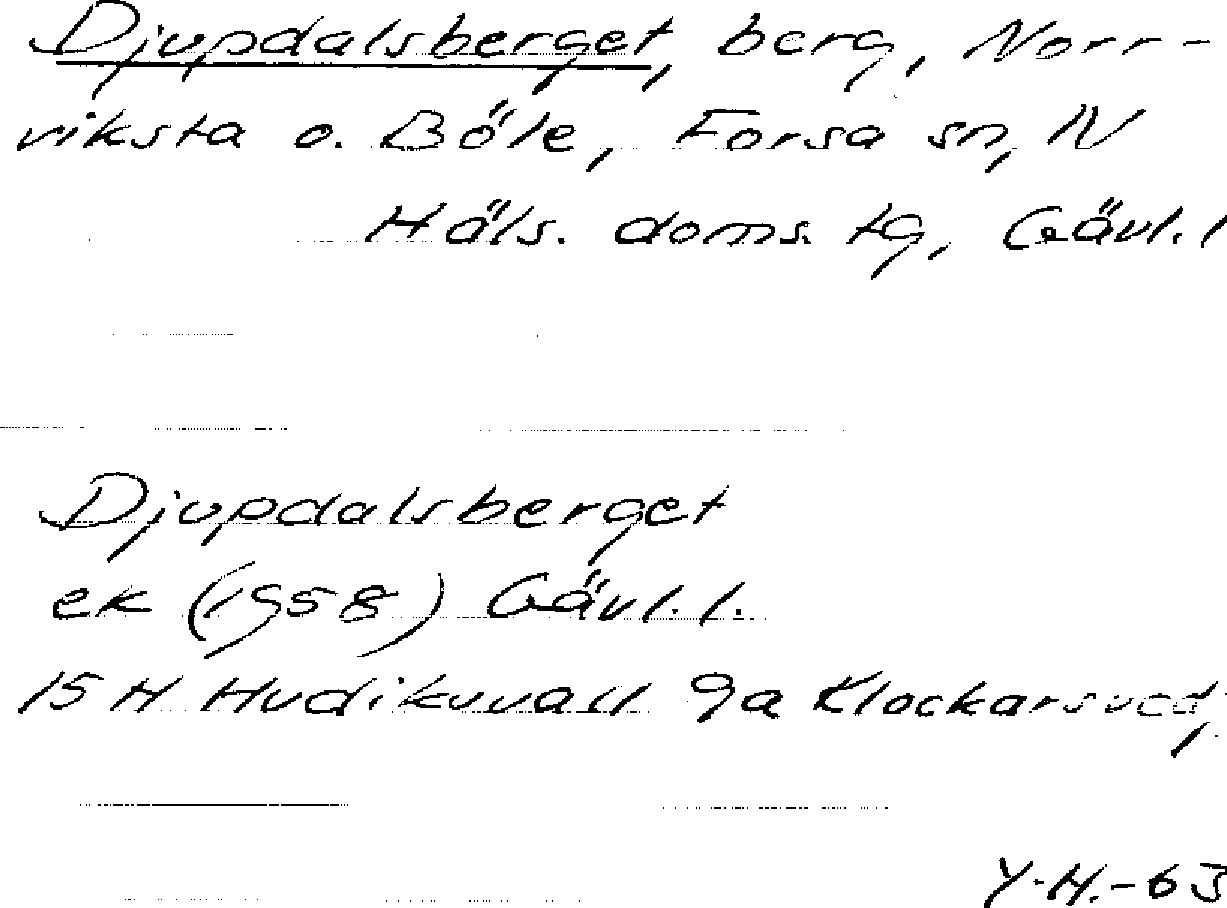 Djupdalsberget, berg, Norr-
viksta o. Böle, Forsa sn, N
Häls. doms. tg, Gävl. l
Djupdalsberget
ek (1958) Gävl. l.
15 H Hudiksvall 9a Klockarsved,
Y.H.-63